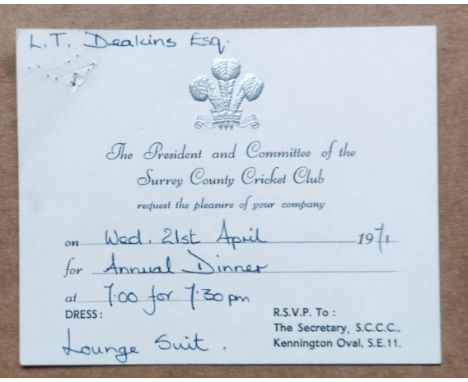 L.T. Deakins Esq.
The President and Committee of the
Surrey County Cricket Club
request the pleasure of your company
on Wed. 21st April 1971
for Annual Dinner
at 7.00 for 7.30pm
DRESS:
Lounge Suit.
R.S.V.P. To:
The Secretary, S.C.C.C.,
Kennington Oval, S.E.11.